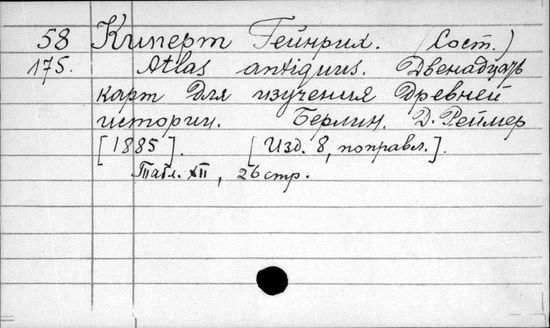 58 Киперт Гейнрих. (Сост.)
175. Atlas antiquus. Двенадцать
карт для изучения древней
истории. Берлин. Д. Реймер
[1885]. [Изд. 8, поправл.].
Табл. XII, 26 стр.